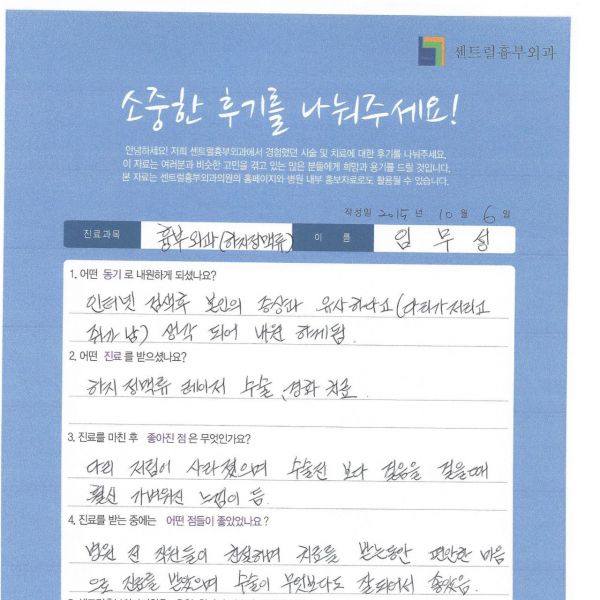 센트럴흉부외과
소중한 후기를 나눠주세요!
안녕하세요! 저희 센트럴흉부외과에서 경험했던 시술 및 치료에 대한 후기를 나눠주세요.
이 자료는 여러분과 비슷한 고민을 겪고 있는 많은 분들에게 희망과 용기를 드릴 것입니다.
본 자료는 센트럴흉부외과의원의 홈페이지와 병원 내부 홍보자료로도 활용될 수 있습니다.
작성일 2015년 10월 6일
진료과목 흉부외과(하지정맥류) 이 름 임무성
1. 어떤 동기로 내원하게 되셨나요?
인터넷 검색후 본인의 증상과 유사하다고(다리가저리고
쥐가 남) 생각 되어 내원 하게됨.
2. 어떤 진료를 받으셨나요?
하지정맥류 레이저 수술, 경화 치료.
3. 진료를 마친 후 좋아진 점은 무엇인가요?
다리 저림이 사라졌으며 수술전 보다 걸음을 걸을때
훨신 가벼워진 느낌이 듬.
4. 진료를 받는 중에는 어떤 점들이 좋았었나요?
병원 전 직원들이 친절하며 치료를 받는동안 편안한 마음
으로 진료를 받았으며 수술이 무엇보다도 잘되어서 좋았음.